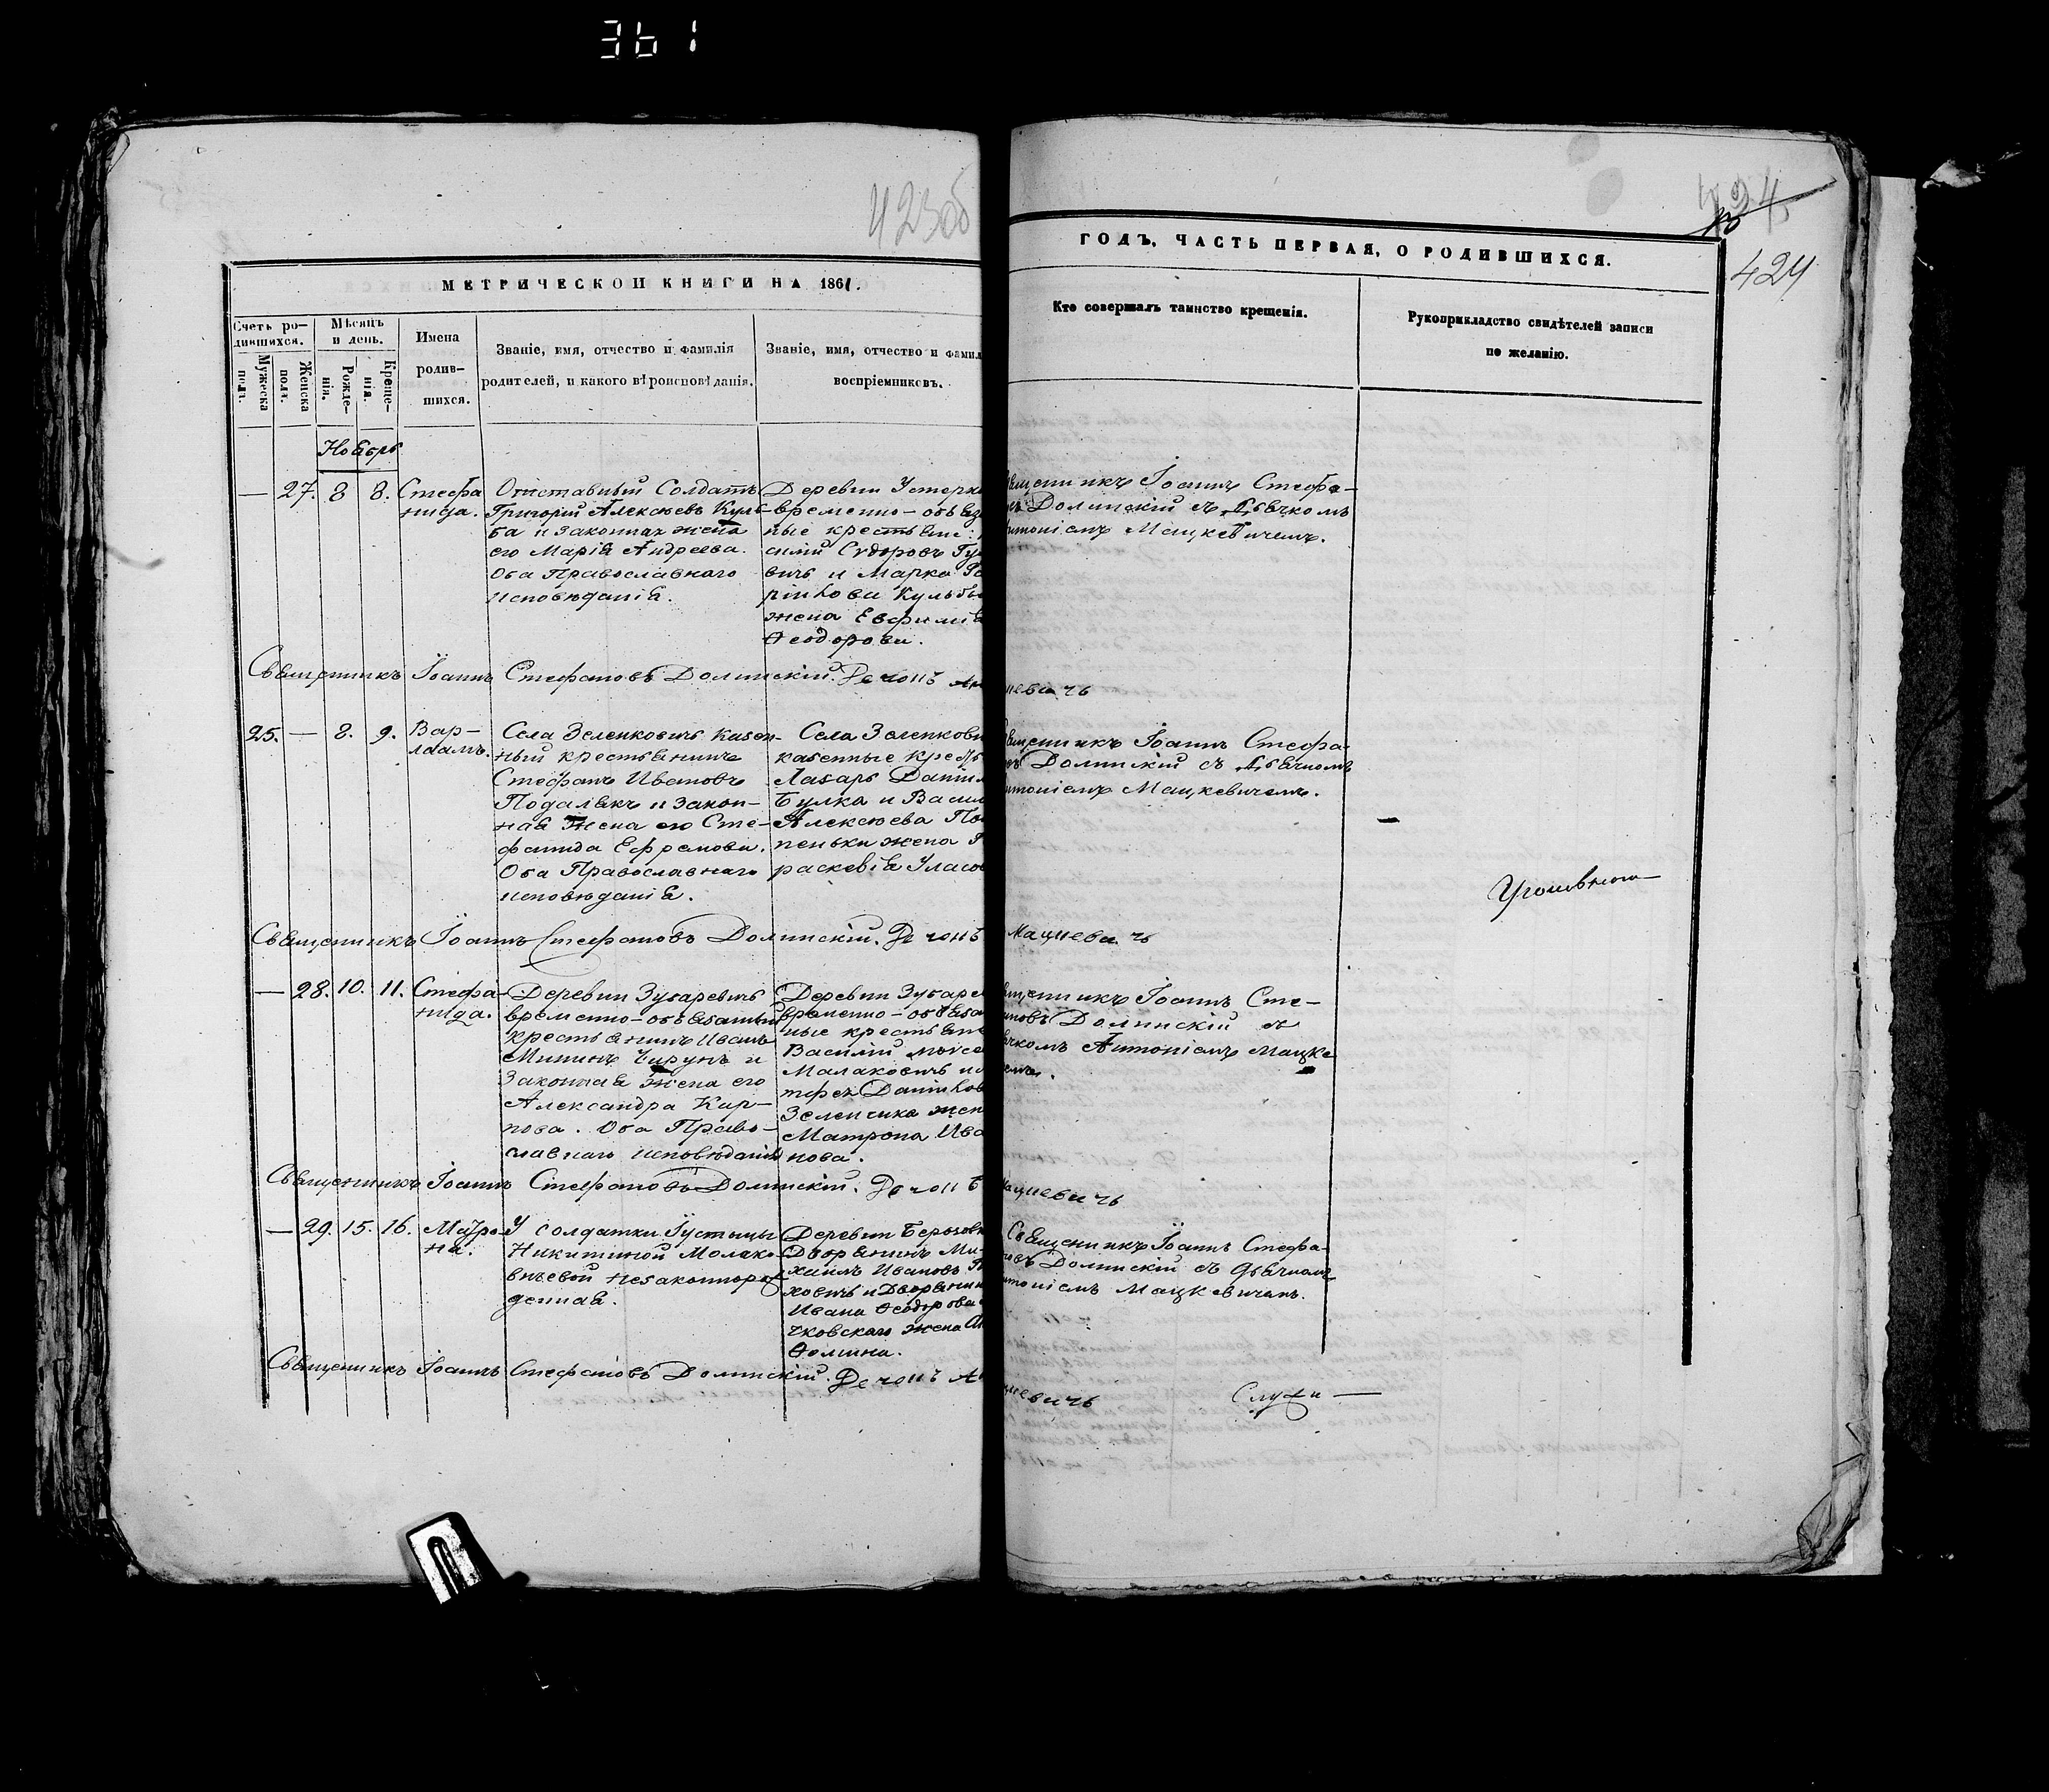 361
423об
424
424
МЕТРИЧЕСКОЙ КНИГИ НА 1861.
ГОДЪ, ЧАСТЬ ПЕРВАЯ, О РОДИВШИХСЯ.
Счетъ ро-
дившихся.
Мужеска
пола.
Женска
пола.
Мѣсяцъ
и день.
Рожде-
нія.
Креще-
нія.
Имена
родив-
шихся.
Званіе, имя, отчество и фамилія
родителей, и какого вѣроисповѣданія.
Званіе, имя, отчество и фамил
воспріемниковъ.
Кто совершалъ таинство крещенія.
Рукоприкладство свидѣтелей записи
по желанію.
Ноябрь
— 27. 8 8.
Стефа
нида.
Отставный Солдатъ
Григорій Алексѣевъ Куль-
ба и законная жена
его Марія Андреева.
Оба Православнаго
исповѣданія.
Деревни Устерхи
временно-обяз
ные крестьяне:
силій Сидоровъ Гу
вичъ и Марка
рілова Кульбы
жена Евфимія
Ѳеодорова.
щенникъ Іоаннъ Стефа-
въ Долинскій съ Дьячкомъ
нтоніемъ Мацкевичемъ.
Священникъ Іоаннъ Стефановъ Долинскій. Дьячокъ Ан
цевичъ
25. — 8. 9.
Вар-
лаамъ.
Села Зеленковичъ казен-
ный крестьянинъ
Стефанъ Ивановъ
Подалякъ и закон-
ная жена его Сте-
фанида Ефремова.
Оба Православнаго
исповѣданія.
Села Зеленкови
казенные кресть
Лазарь Данил
Булка и Васил
Алексѣева По
пеньки жена П
раскевія Уласов
щенникъ Іоаннъ Стефа-
въ Долинскій съ Дьячкомъ
нтоніемъ Мацкевичемъ.
Священникъ Іоаннъ Стефановъ Долинскій. Дьячокъ
Мацкевичъ
— 28. 10. 11.
Стефа-
нида.
Деревни Зубаревичъ
временно-обязанный
крестьянинъ Иванъ
Мининъ Чирунъ и
Законная жена его
Александра Кар-
пова. Оба Право-
славнаго исповѣданія
Деревни Зубаре
временно-обяза
ные крестьяне
Василій Моисе
Малаковичъ и
трфея Данилов
Зеленчика жен
Матрона Ива
нова.
щенникъ Іоаннъ Сте-
новъ Долинскій съ
ячкомъ Антоніемъ Мацке
емъ.
Священникъ Іоаннъ Стефановъ Долинскій. Дьячокъ
Мацкевичъ
— 29. 15. 16.
Матро-
на.
У солдатки Іустины
Никитиной Молако-
вневой незаконнорож
денная.
Деревни Березовк
Дворянинъ Ми-
хаилъ Ивановъ
ховичъ и Дворянин
Ивана Ѳеодорова
чковскаго жена Ан
Ѳомина.
Священникъ Іоаннъ Стефа-
новъ Долинскій съ Дьячкомъ
нтоніемъ Мацкевичемъ.
Священникъ Іоаннъ Стефановъ Долинскій. Дьячокъ Ан
цкевичъ